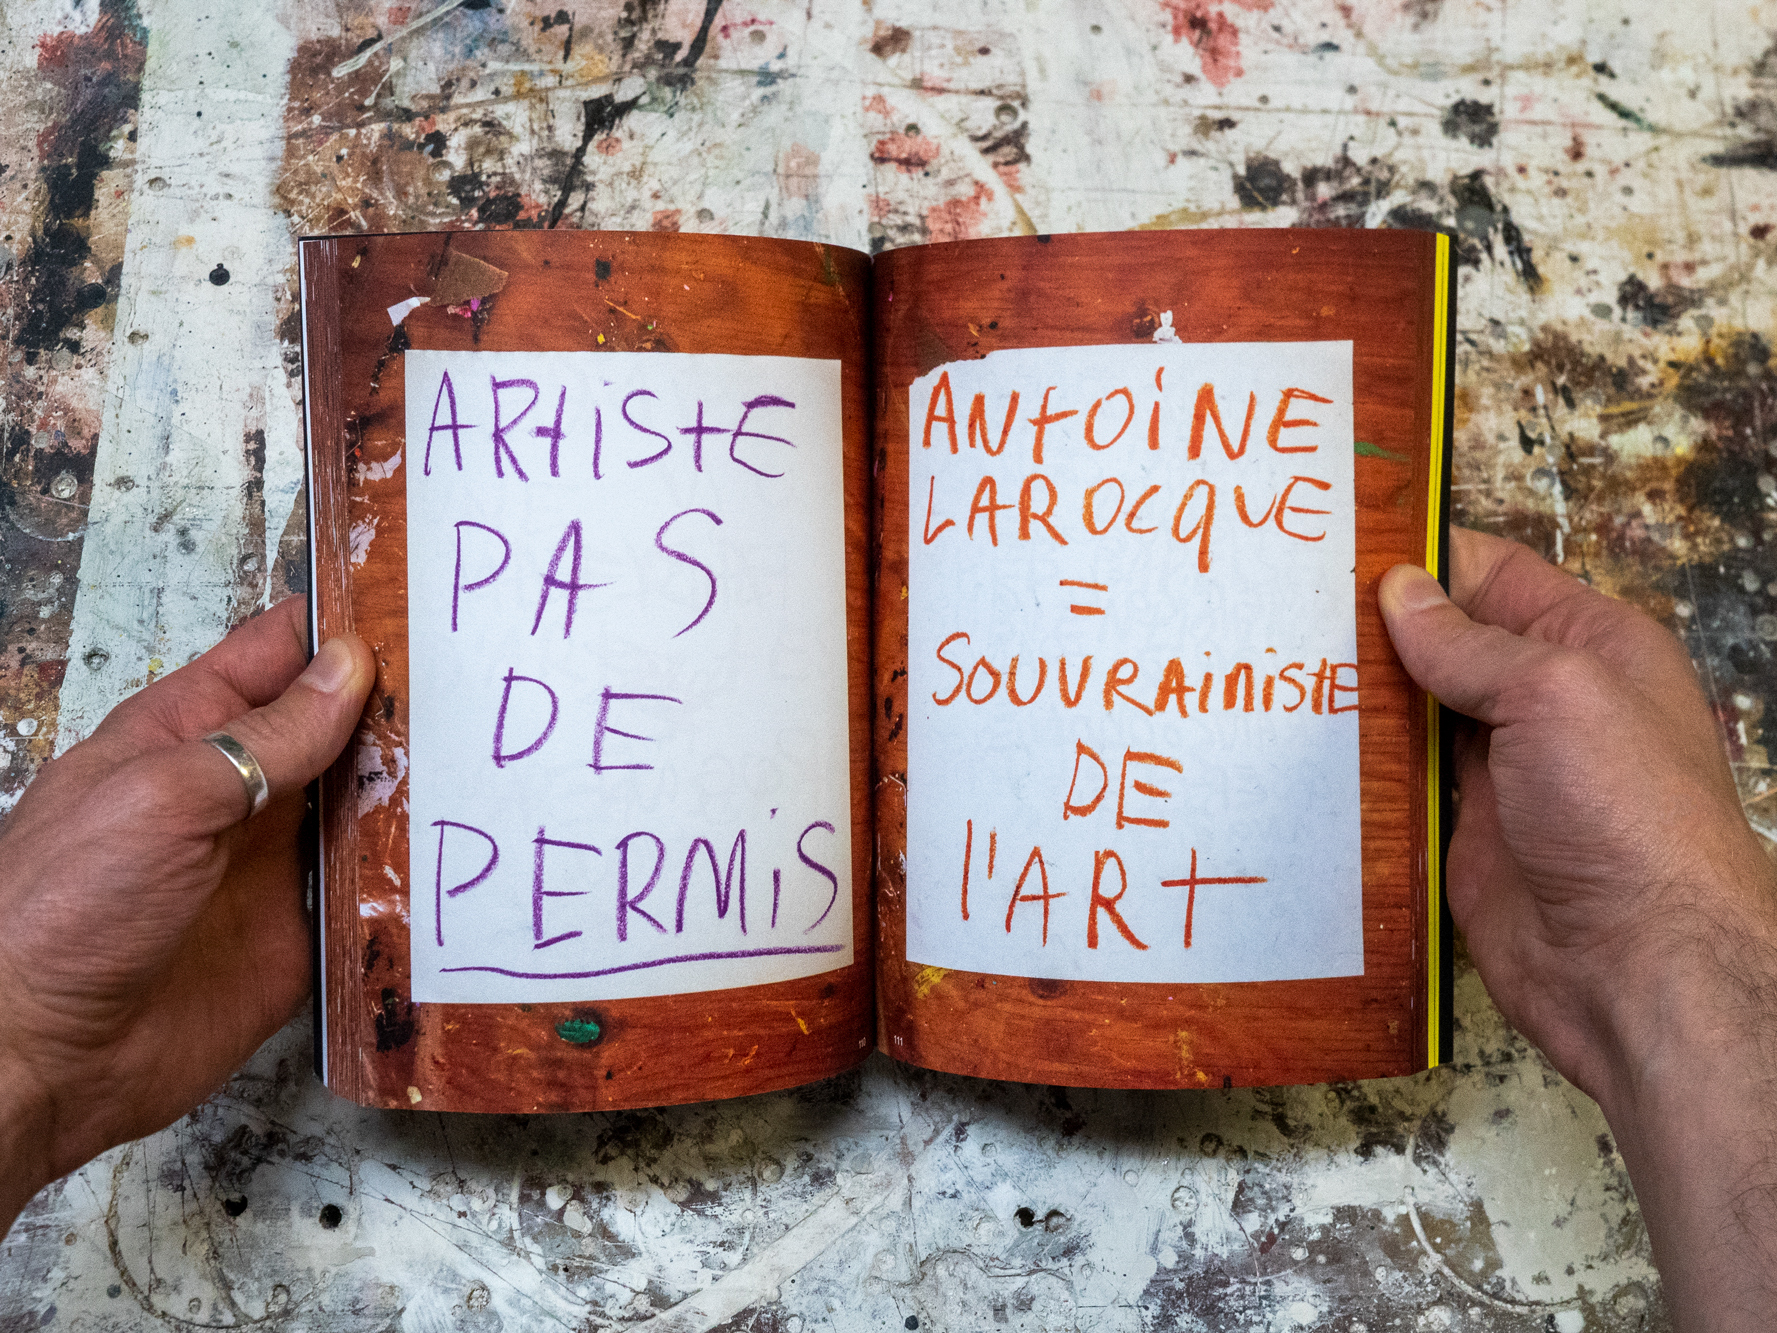 ARtiStE
PAS
DE
PERMiS
110
ANtOiNE
LAROCqUE
=
SOUVRAiniStE
DE
l'ARt
111